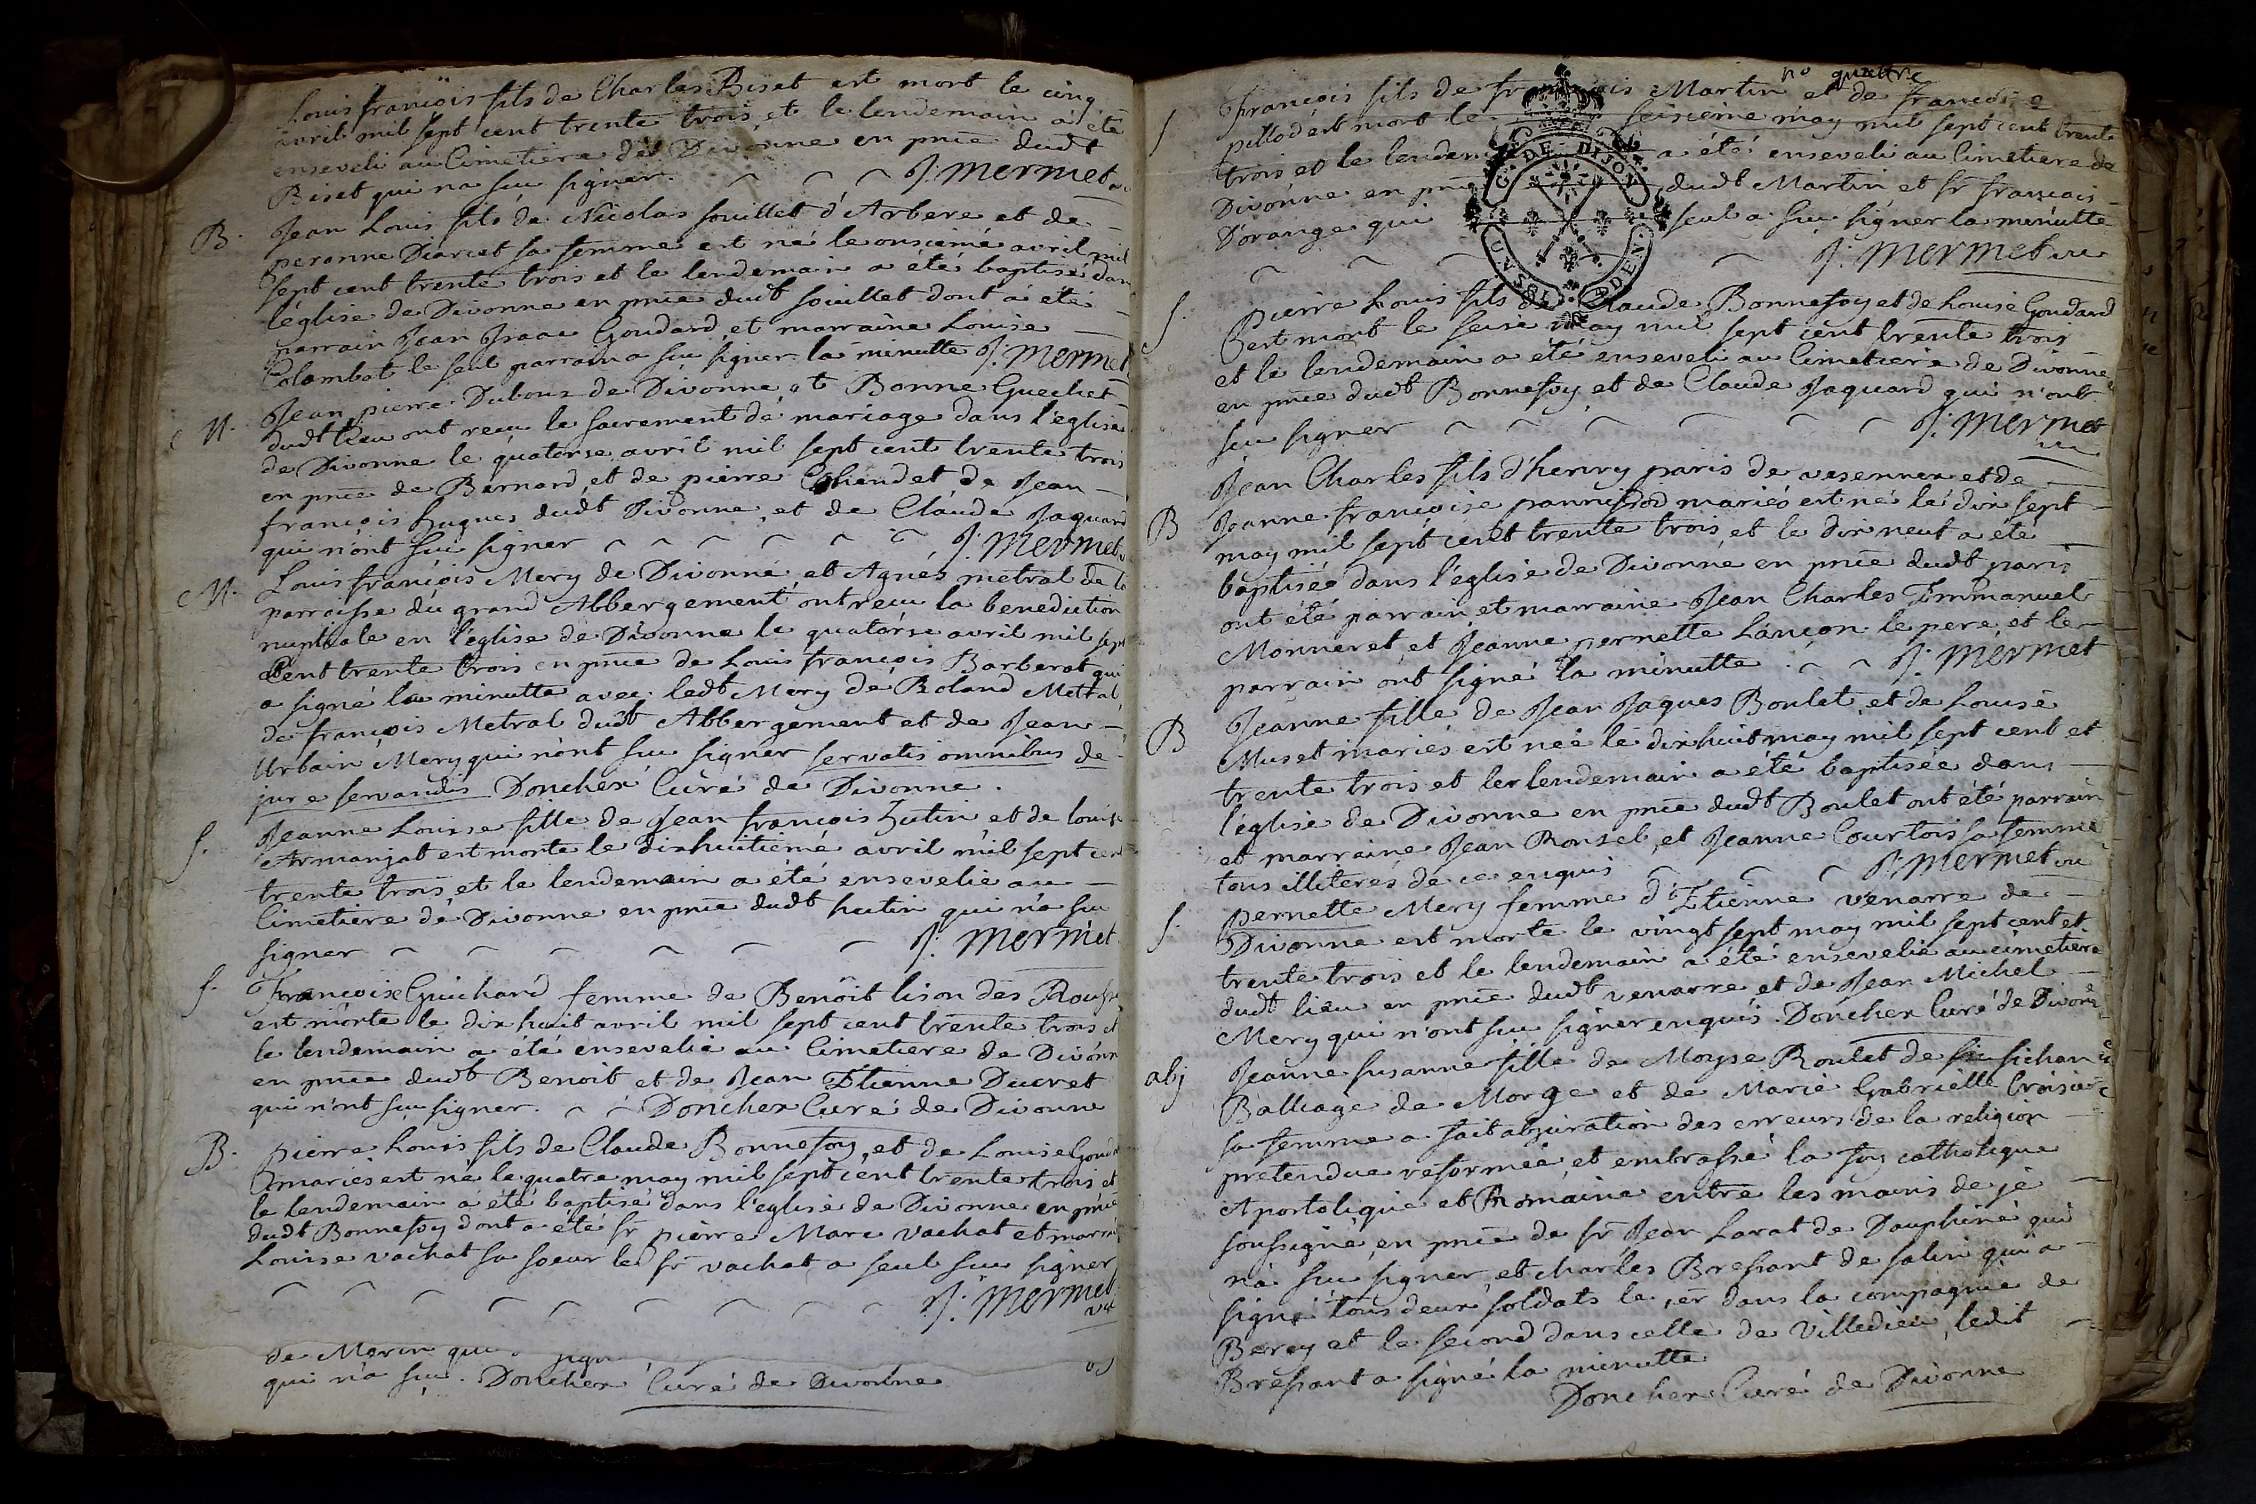 Louis françois fils de Charles Biset est mort le cinq
avril mil sept cent trente trois, et le lendemain a été
enseveli au Cimetiere de Divonne en pnce dudt
Biset qui na sçu signer. J: Mermet vic
B. Jean Louis fils de Nicolas souillet d'Arbere et de
peronne Diarcet sa femme est né le onsieme avril mil
sept cent trente trois et le lendemain a été baptisé dans
l'église de Divonne en pnce dudt souillet dont a été
parrain Jean Jsaac Goudard, et marraine Louise
Colombat le seul parrain a sçu signer la minutte J: Mermet
M. Jean pierre Dubous de Divonne et Bonne Guechet
dudt lieu ont reçu le sacrement de mariage dans l'eglise
de Divonne le quatorse avril mil sept cent trente trois
en pnce de Bernard, et de pierre Chendet de Jean
françois hugues dudt Divonne, et de Claude Jaquard
qui n'ont sçu signer J: Mermet v
M. Louis françois Mery de Divonne, et Agnés metral de la
parroisse du grand Abbergement, ont reçu la benediction
nuptiale en l'église de Divonne le quatorse avril mil sept
Cent trente trois en pnce de Louis françois Barberat qui
a signé la minutte avec ledt Mery de Roland Metral,
de françois Metral dudt Abbergement et de Jean
Urbain Mery qui n'ont sçu signer servatis omnibus de
jure servandis Donchex Curé de Divonne.
S. Jeanne Louise fille de Jean françois hutin et de louise
Armanjat est morte le dixhuitiemé avril mil sept cent
trente trois, et le lendemain a été ensevelie au
Cimetiere de Divonne en pnce dudt hutin qui n'a sçu
signer J: Mermet
S. Françoise Guichard femme de Benoit lison des Rousses
est morte le dix huit avril mil sept cent trente trois et
le lendemain a été ensevelie au Cimetiere de Divonne
en pnce dudt Benoit et de Jean Etienne Ducret
qui n'ont sçu signer. Donchex Curé de Divonne
B. pierre Louis fils de Claude Bonnefoy, et de Louise Goudard
mariés est né le quatre may mil sept cent trente trois et
le lendemain a été baptisé dans l'eglise de Divonne en pnce
dudt Bonnefoy dont a été sr pierre Marc vachat et marraine
Louise vachat sa soeur le sr vachat a seul sçu signer
J: Mermet
vic
de Morin
qui n'a sçu. Donchex Curé de Divonne
no quattre
S François fils de françois Martin et de françoise
pillod est mort le seisieme may mil sept cent trente
trois et le lendem a été enseveli au Cimetiere de
Divonne en pnce dudt Martin, et sr françois
D'orange qui seul a sçu signer la minutte
J: Mermet vic
S. pierre Louis fils de Claude Bonnefoy et de Louise Goudard
est mort le seise may mil sept cent trente trois
et le lendemain a été enseveli au Cimetiere de Divonne
en pnce dudt Bonnefoy, et de Claude Jaquard qui n'ont
sçu signer J: Mermet
vic
Jean Charles fils d'henry paris de vesennex et de
B Jeanne françoise pannissod mariés est né le dix sept
may mil sept cent trente trois, et le dix neuf a été
baptisée dans l'église de Divonne en pnce dudt paris
ont été parrain, et marraine Jean Charles Emmanuel
Monneret, et Jeanne pernette Lançon le pere, et le
parrain ont signé la minutte. J: Mermet
B Jeanne fille de Jean Jaques Boulet, et de Louise
Muset mariés est née le dixhuit may mil sept cent et
trente trois et le lendemain a été baptisée dans
l'église de Divonne en pnce dudt Boulet ont été parrain
et marraine Jean Ronsel, et Jeanne Courtois sa femme
tous illiterés de ce enquis J: Mermet vic
S. pernette Mery femme d'Etienne venarre de
Divonne est morte le vingt sept may mil sept cent et
trente trois et le lendemain a été ensevelie au cimetiere
dudt lieu en pnce dudt venarre et de Jean Michel
Mery qui n'ont sçu signer enquis. Donchex Curé de Divonne
abj Jeanne susanne fille de Moyse Roulet de
Balliage de Morge et de Marie Gabrielle Croisier
sa femme a fait abjuration des erreurs de la religion
pretendue reformée, et embrassé la foy catholique
Apostolique et Romaine entre les mains de je
soussigné, en pnce de sr Jean Larat de Dauphiné qui
n'a sçu signer, et charles Bressant de salin qui a
signé tous deux soldats le 1er dans la compagnie de
Bercy et le second dans celle de Villedieu, ledit
Bressant a signé la minutte
Donchex Curé de Divonne
G. DE DIJON